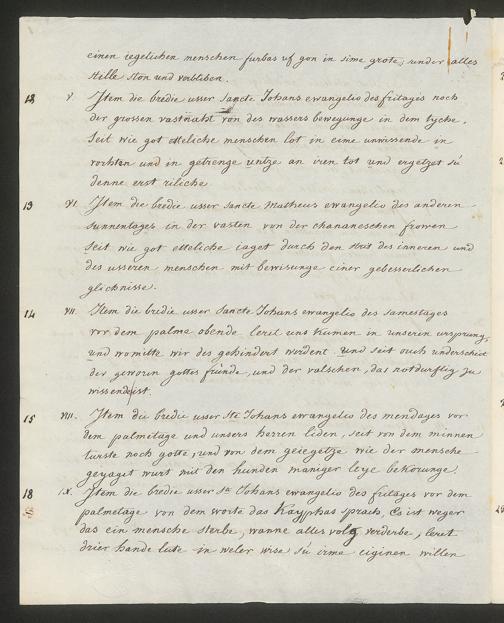 einen iegelichen menschen furbas uf gon in sime grote, under alles
stille ston und verbliben.
12 V. Item die bredie usser Sancte Johans ewangelio des fritages noch
der grossen vastnaht von des wassers bewegunge in dem tyche.
Seit wie got etteliche menschen lot in eime unwissende in
vorhten und in getrenge untze an iren tot und ergetzet sú
denne erst riliche
13 VI. Item die bredie usser sancte Matheus ewangelio des anderen
sunnentages in der vasten von der chananeschen frowen
seit wie got etteliche iaget durch den strit des inneren und
des usseren menschen mit bewisunge einer gebesserlichen
glichnisse.
14 VII. Item die bredie usser Sancte Johans ewangelio des samestages
vor dem palme obende leret uns kumen in unserin ursprung,
und womitte wir des gehindert werdent und seit ouch underscheit
der geworen gottes frúnde, und der valschen, das notdurftig zu
wissende ist.
15 VIII. Item die bredie usser Ste Johans ewangelio des mendages vor
dem palmetage und unsers herren liden, seit von dem minnen
turste noch gotte, und von dem geiegetze wie der mensche
geyaget wurt mit den hunden maniger leye bekorunge.
18 IX. Item die bredie usser Ste Johans ewangelio des fritages vor dem
palmetage von dem worte das Kayphas sprach, Es ist weger
das ein mensche sterbe, wanne alles volg verderbe, leret
drier hande lúte in weler wise sú irme eiginen willen